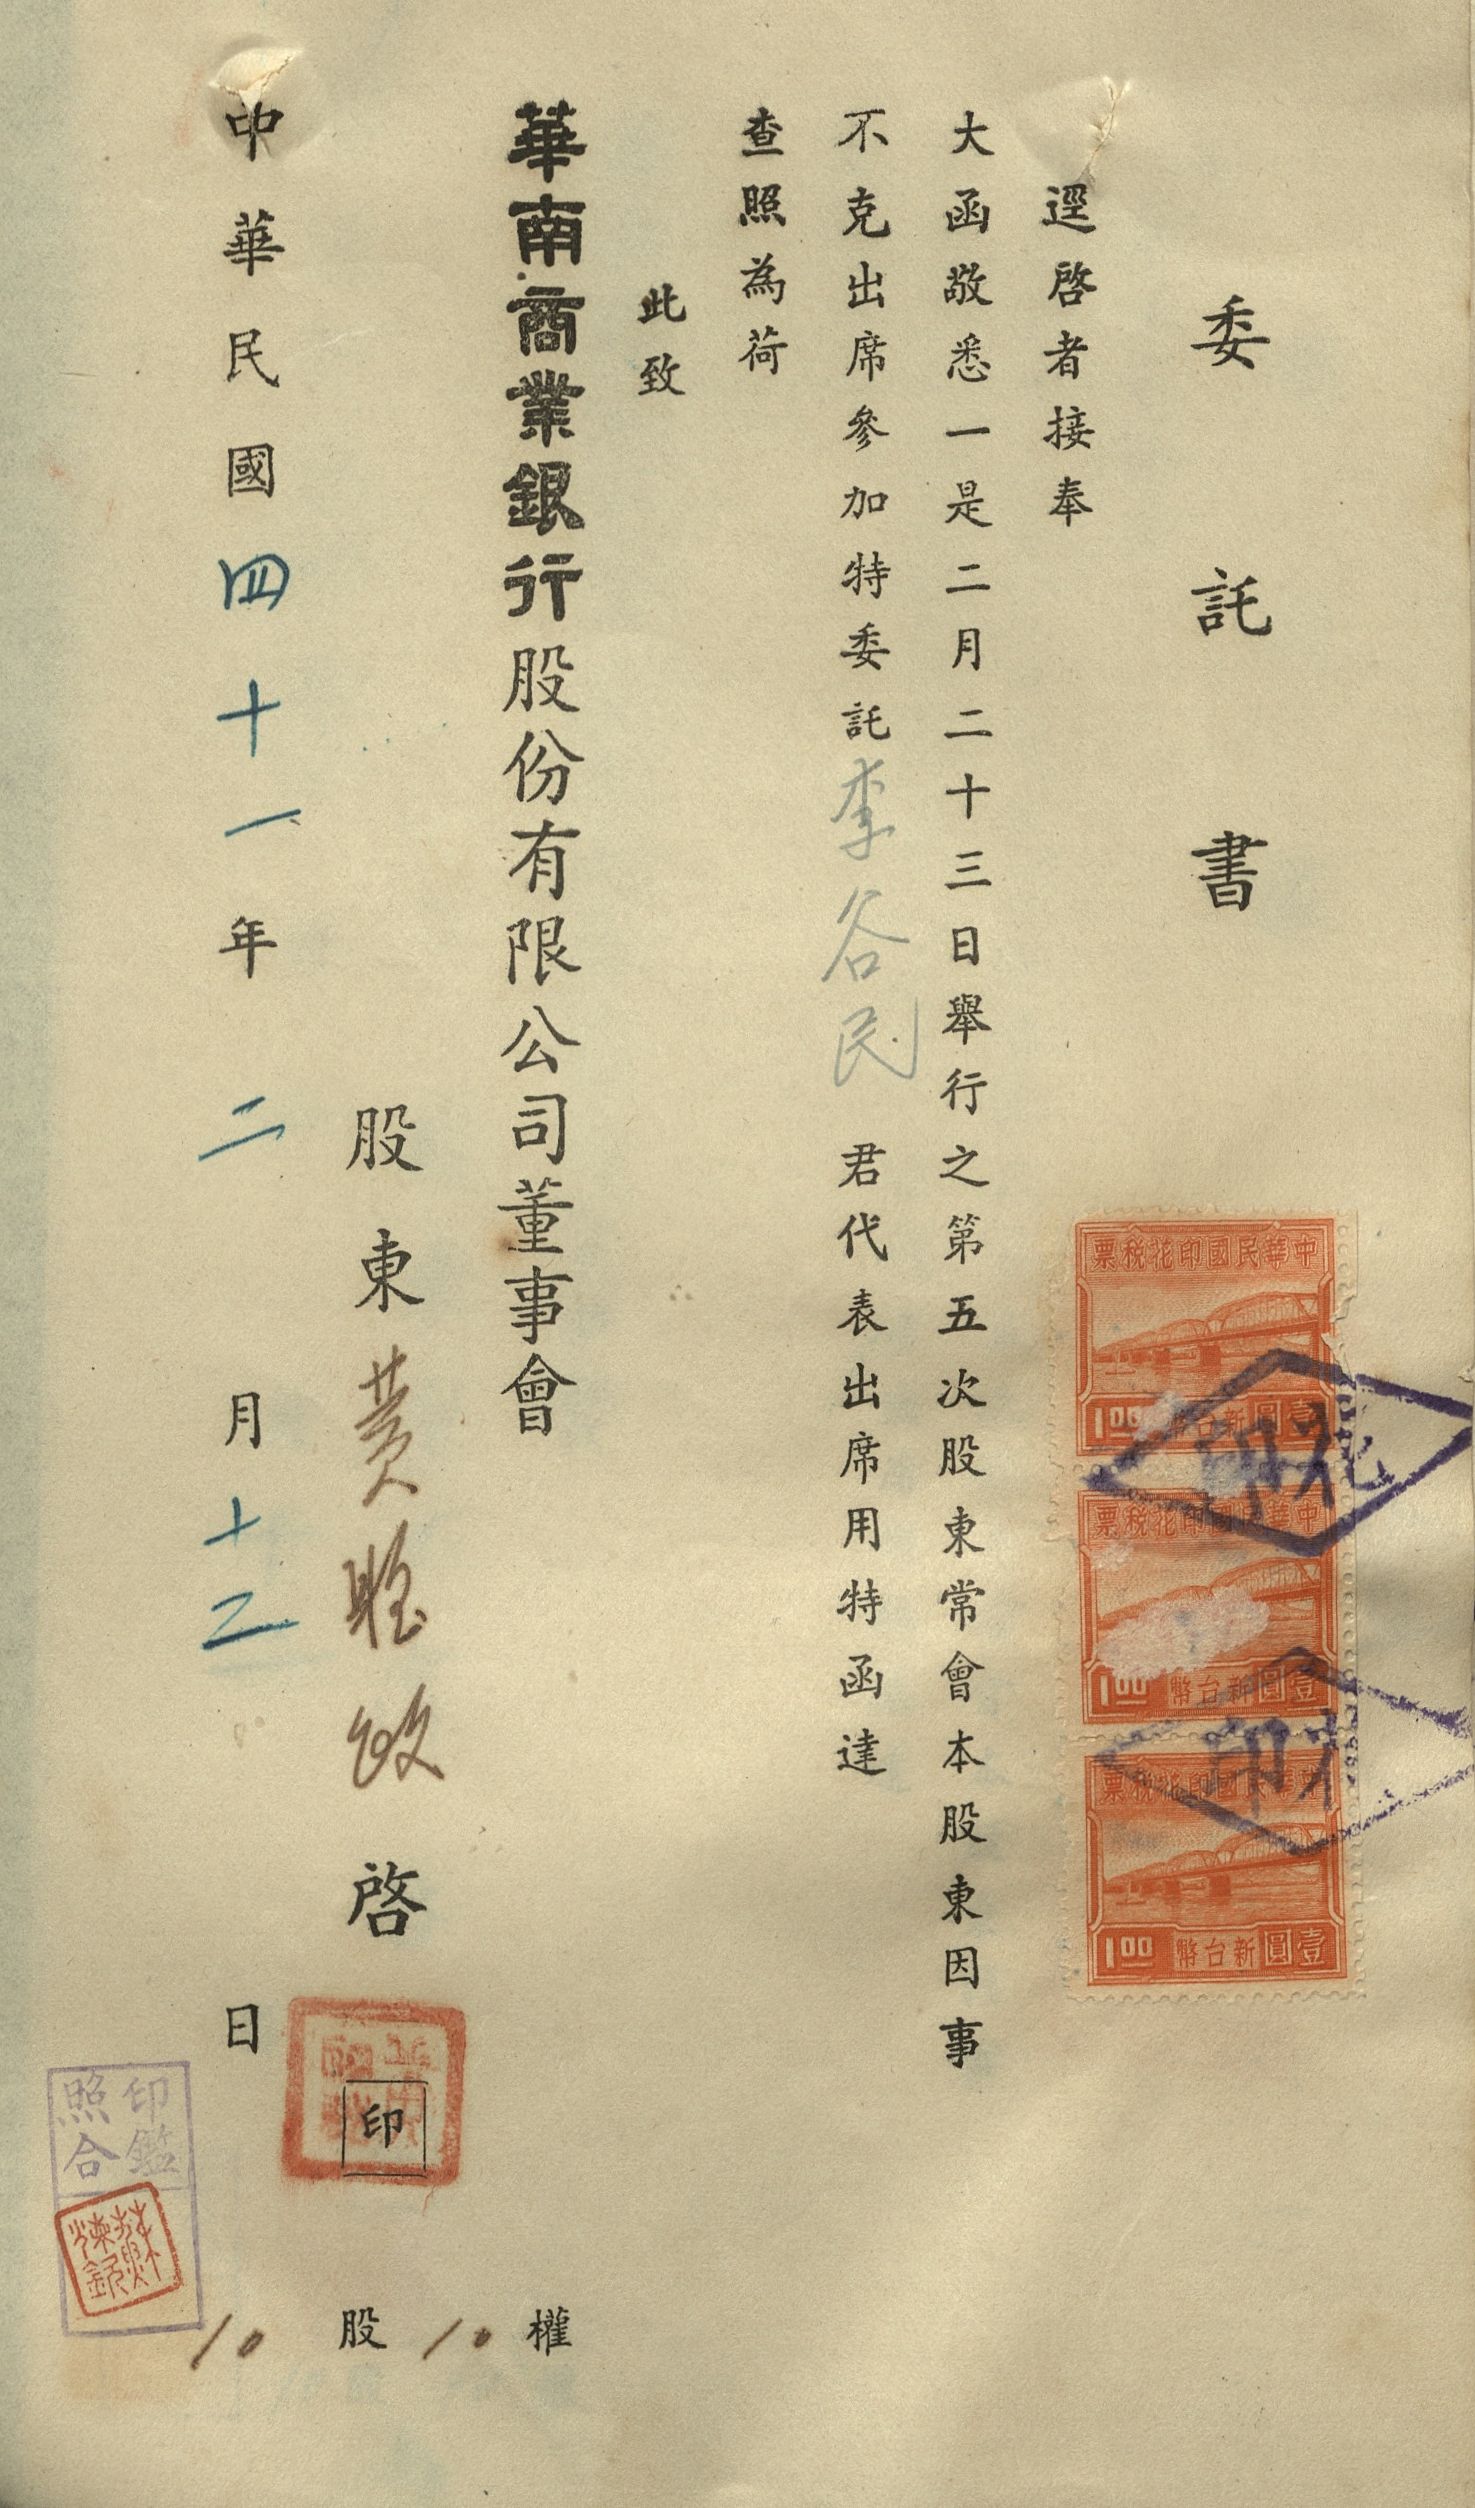 委託書
逕啓者接奉
大函敬悉一是二月二十三日舉行之第五次股東常會本股東因事
不克出席參加特委託李谷民君代表出席用特函達
查照為荷
此致
華南商業銀行股份有限公司董事會
股東黃 政啓
印
中華民國四十一年二月十二日
權10股10
中華民國印花稅票
1.00 新台幣壹圓
中華民國印花稅票
1.00 新台幣壹圓
中華民國印花稅票
1.00 新台幣壹圓
印花
印花
印鑑
照合